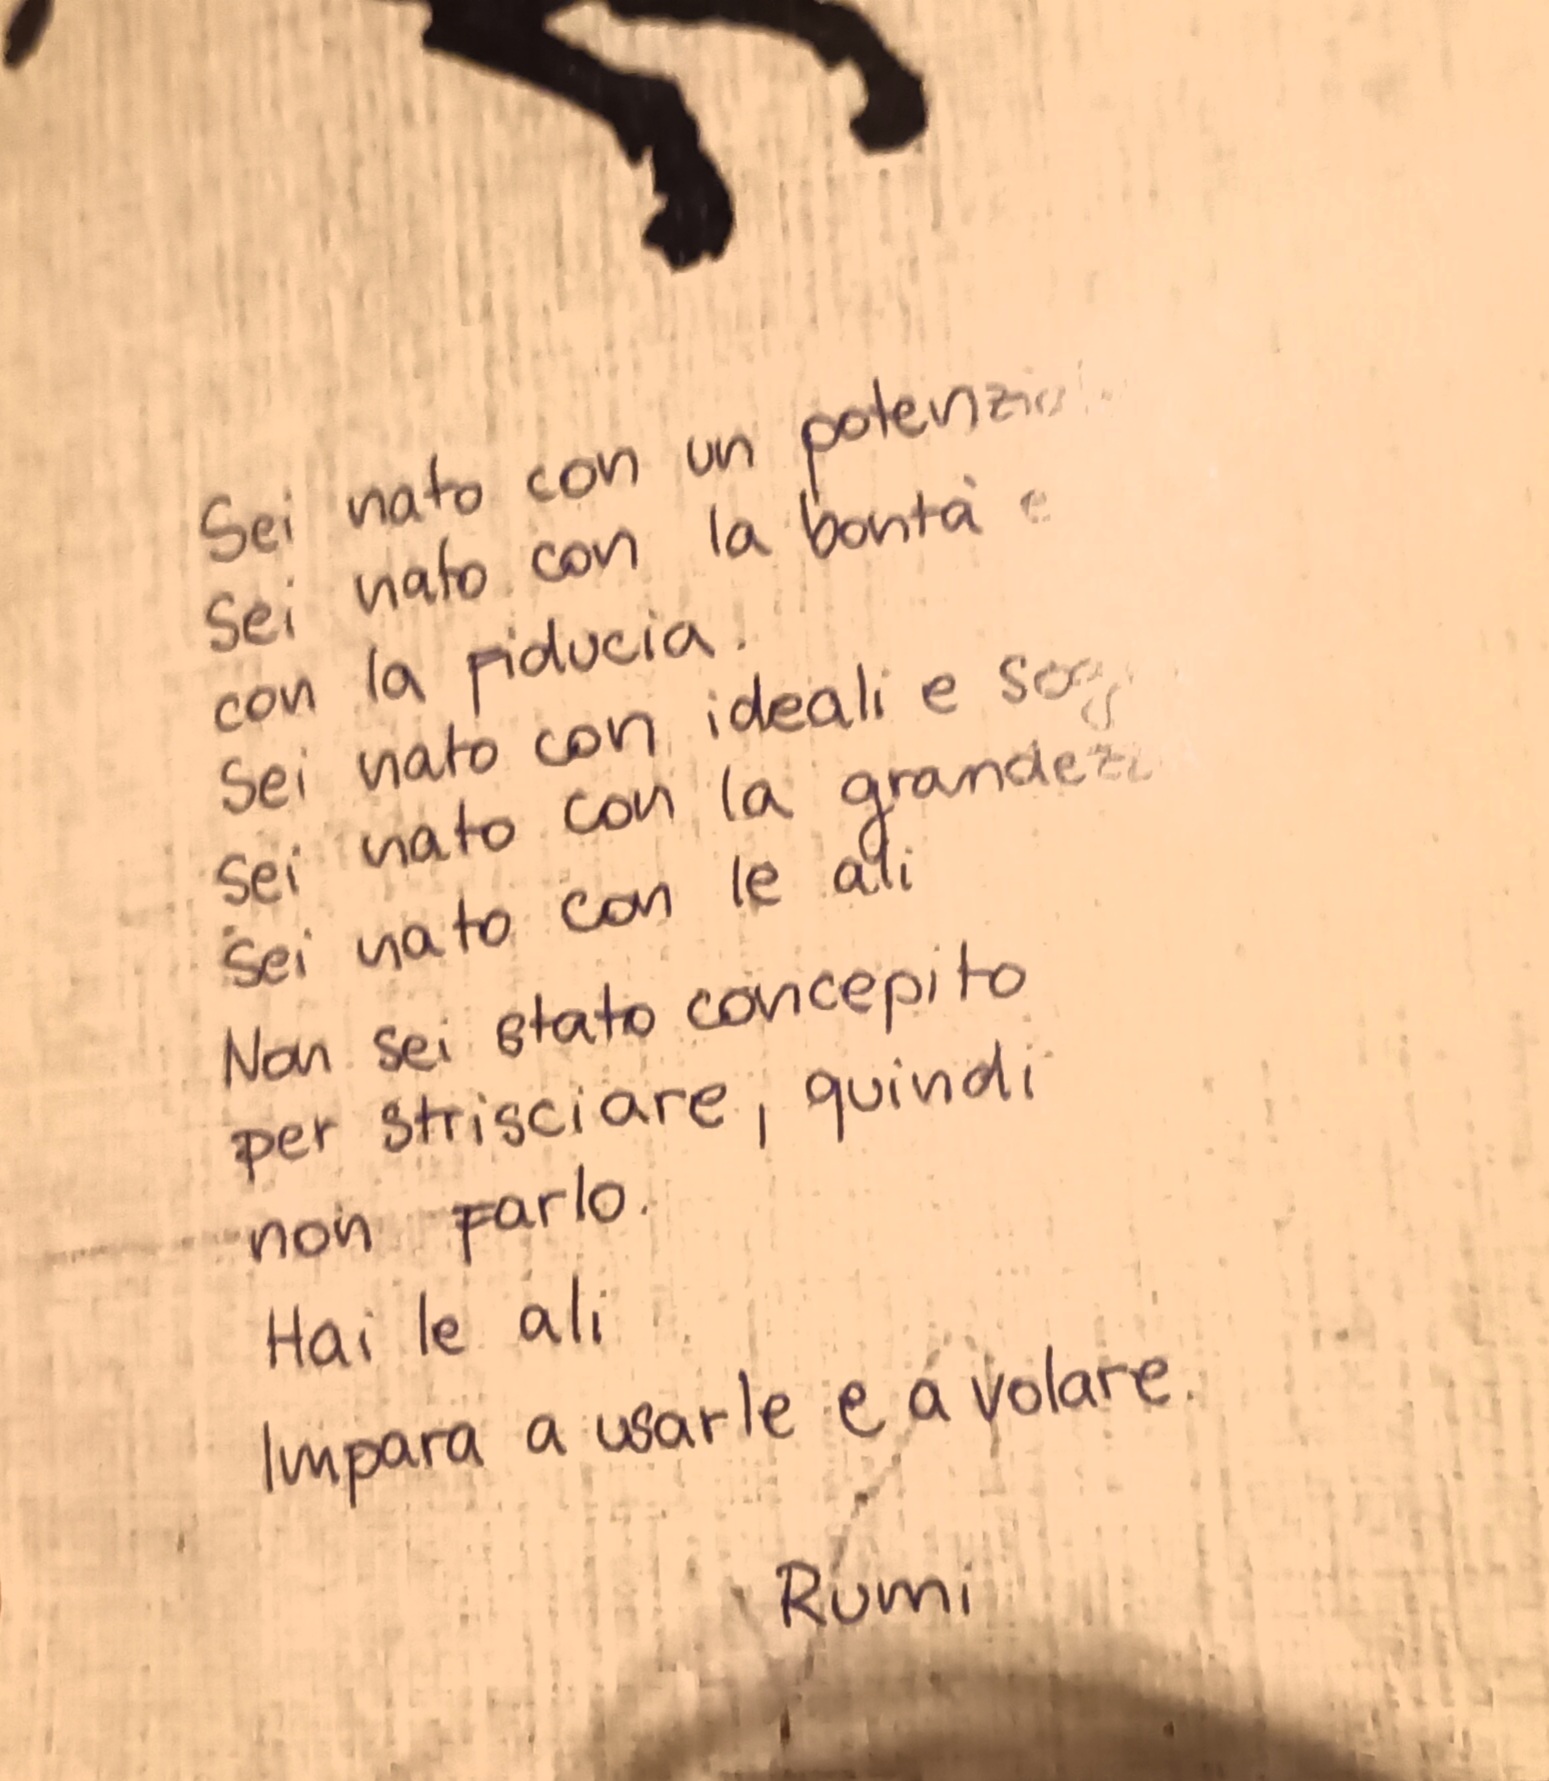 Sei nato con un potenziale
Sei nato con la bontà e
con la fiducia.
Sei nato con ideali e
Sei nato con la grandezza
Sei nato con le ali
Non sei stato concepito
per strisciare, quindi
non farlo.
Hai le ali
Impara a usarle e a volare.
Rumi